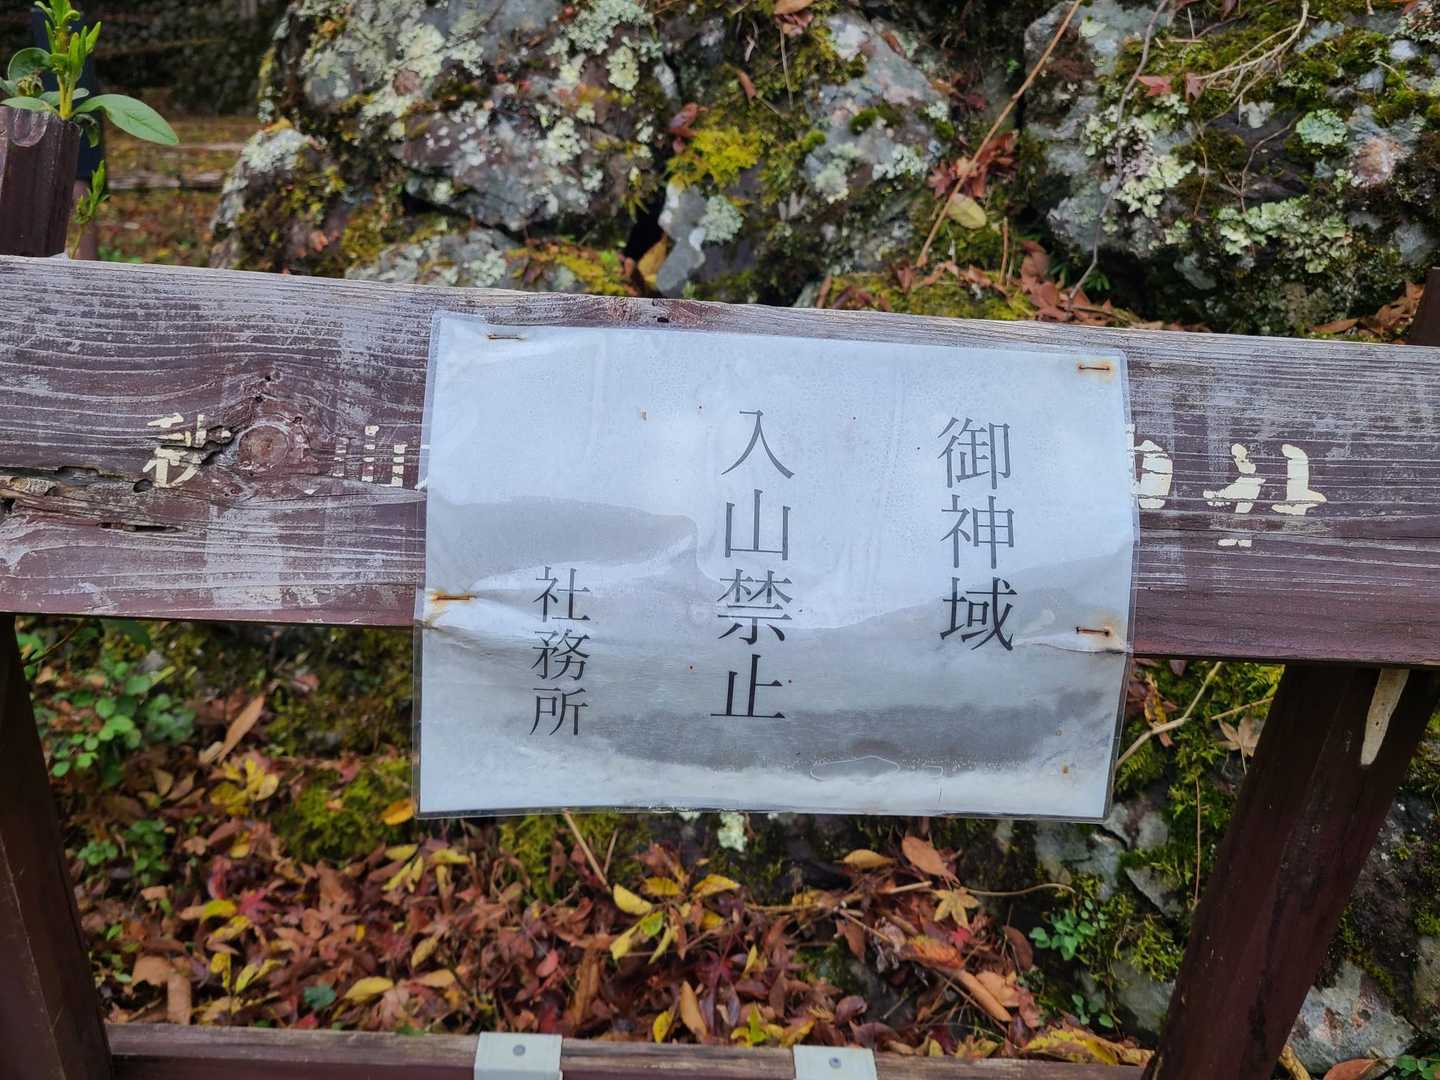 御神域
入山禁止
社務所
秋
山
社